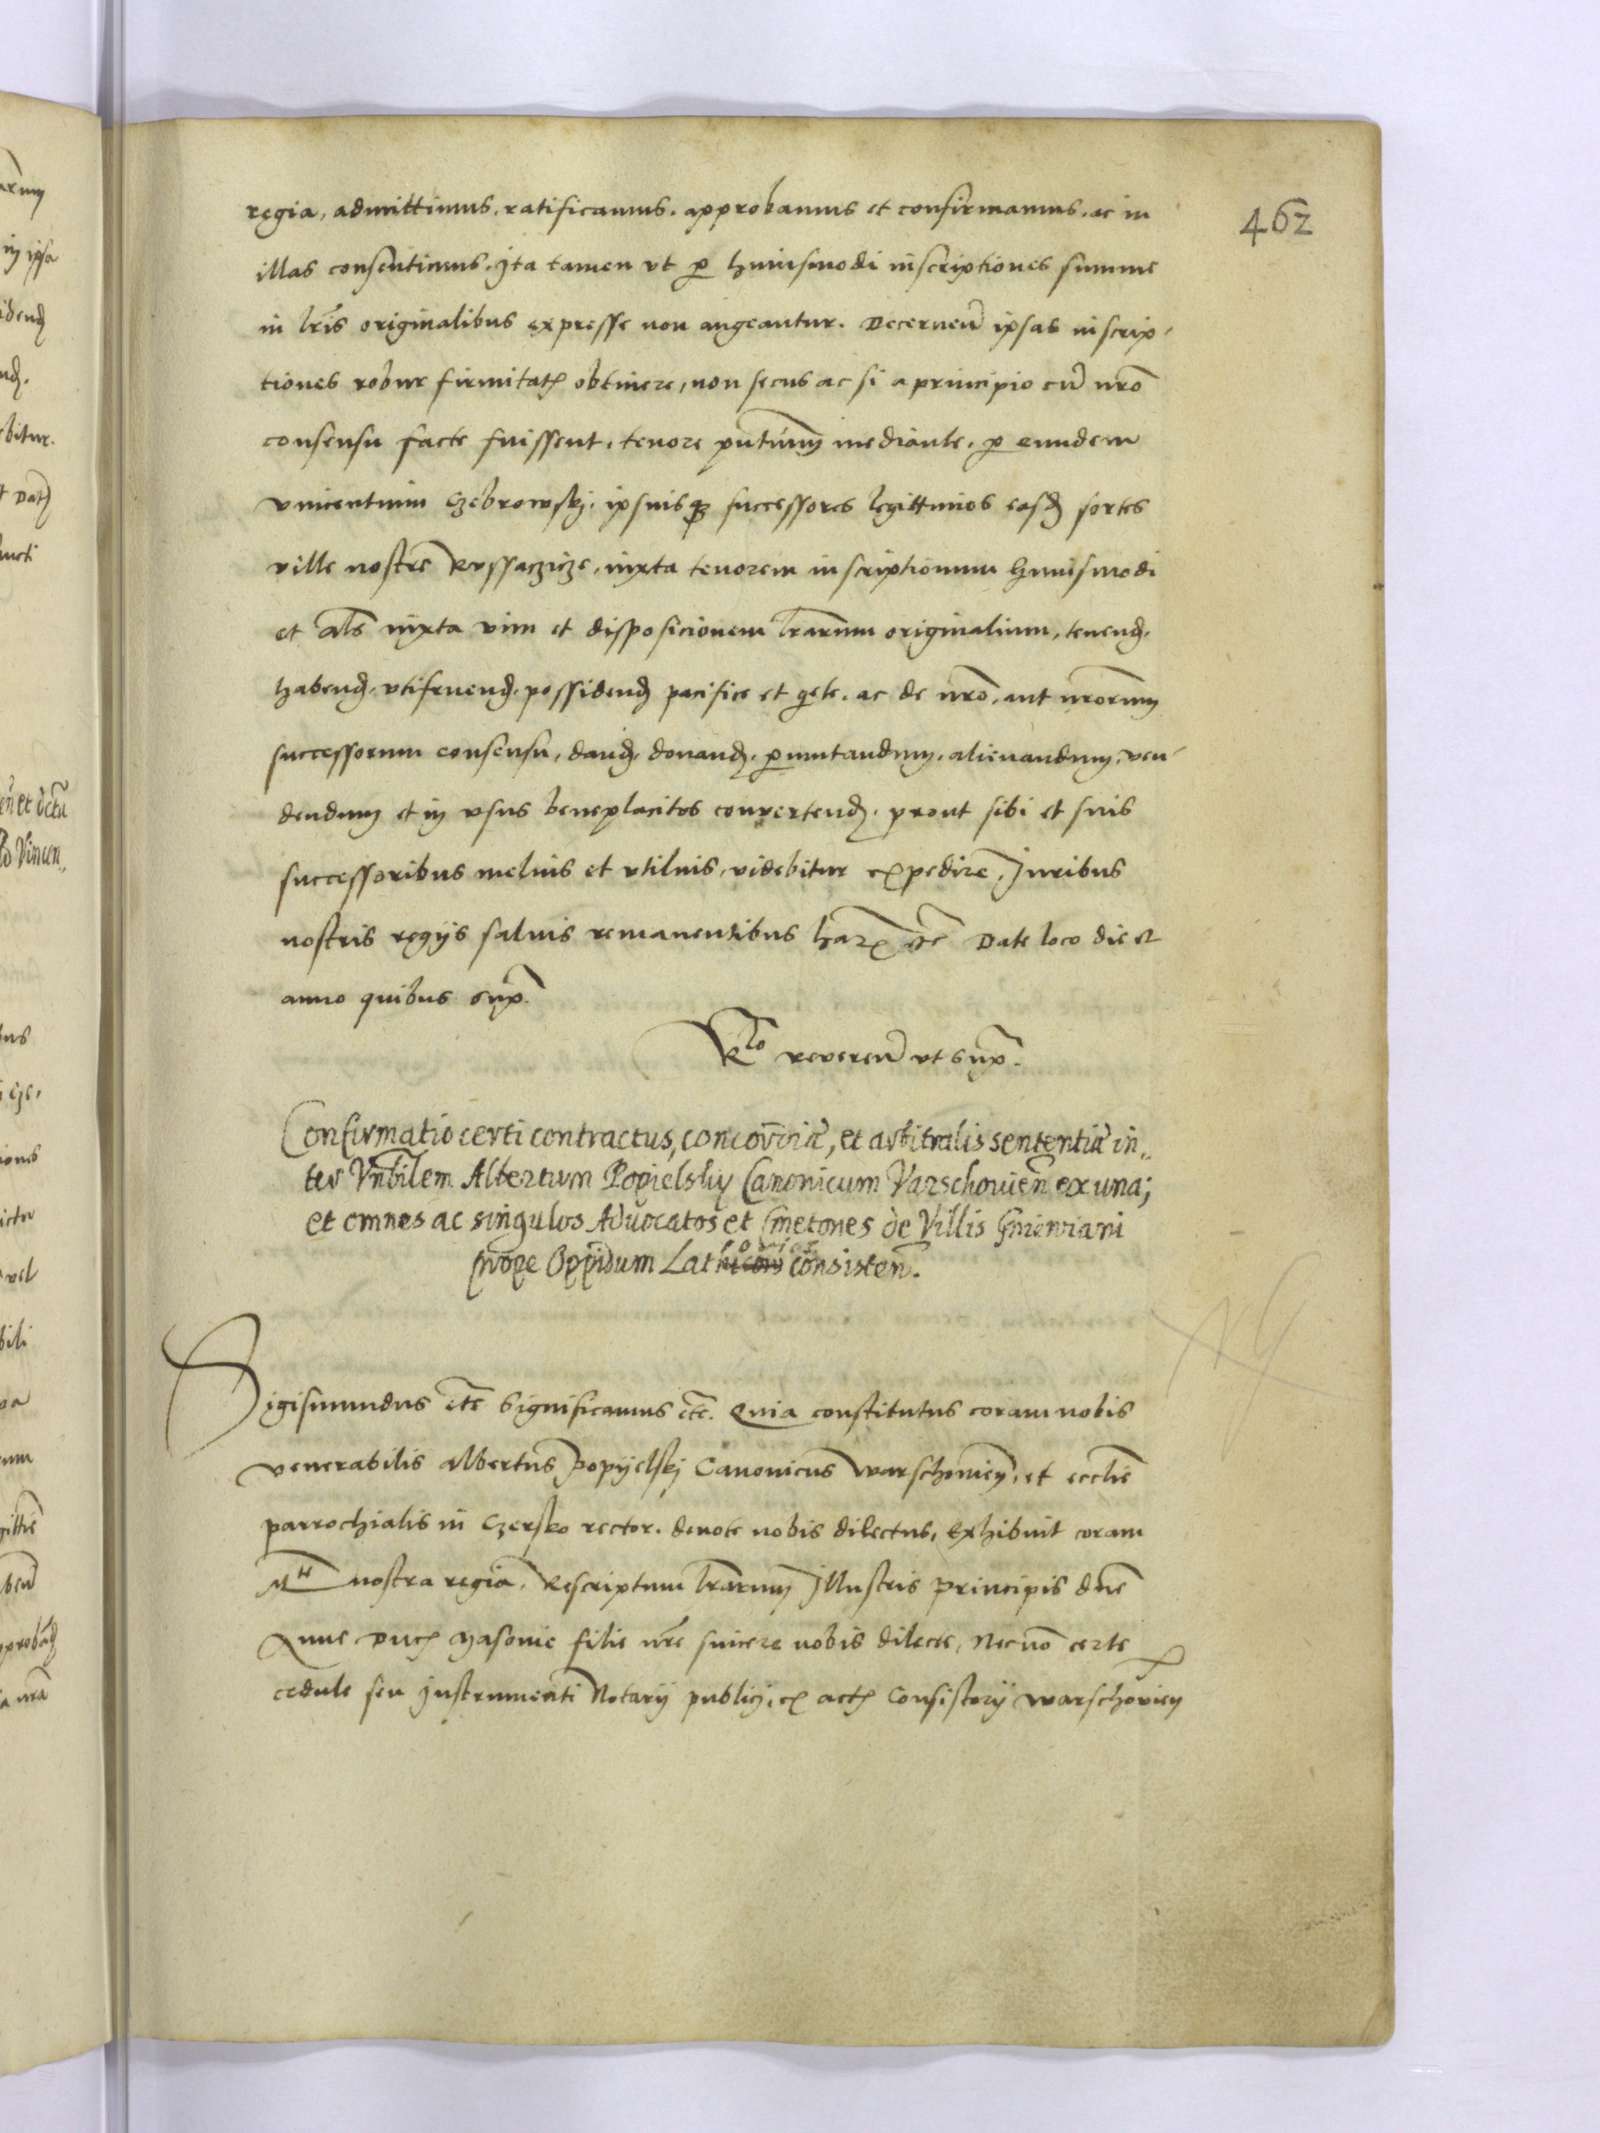 462
regia, admittimus, ratificamus, approbamus et confirmamus, ac in
illas consentimus. Ita tamen vt p huiusmodi inscriptiones summe
in lris originalibus expresse non augeantur. Decernen ipsas inscrip-
tiones robur firmitatis obtinere, non secus ac si a principio cu nro
consensu facte fuissent, tenore pntium mediante, p eundem
vincentium Czebrowskj, ipsiusq successores legittimos easd sortes
ville nostre Russaczicze, iuxta tenorem inscriptionum huiusmodi
et als iuxta vim et disposicionem lrarum originalium, tenend,
habend, vtifruend, possidend pacifice et qete, ac de nro, aut nrorum
successorum consensu, dand, donand, pmutandum, alienandum, ven-
dendum et in vsus beneplacitos convertend, prout sibi et suis
successoribus melius et vtilius, videbitur expedire, Juribus
nostris regijs saluis remanentibus har etc Date loco die et
anno quibus supra
Rlo reveren vt supra.
Confirmatio certi contractus, concordiæ, et arbitralis sententiæ in-
ter Vnbilem Albertum Popielsky Canonicum Varschouien ex una;
et omnes ac singulos Advocatos et Cmetones de Villis Gnieviani
prope Oppidum Lathowicz consisten.
Sigismundus etc Significamus etc. Quia constitutus coram nobis
venerabilis albertus Popijelskj Canonicus Warschouien, et ecclie
parrochialis in Czersko rector, deuote nobis dilectus, Exhibuit coram
Mte nostra regia, Rescriptum lrarum Illustris principis dne
Anne Ducis Masouie filie nre sincere nobis dilecte, Necno certe
cedule seu Instrumenti Notarij publicj, ex actis Consistorij Warschovien